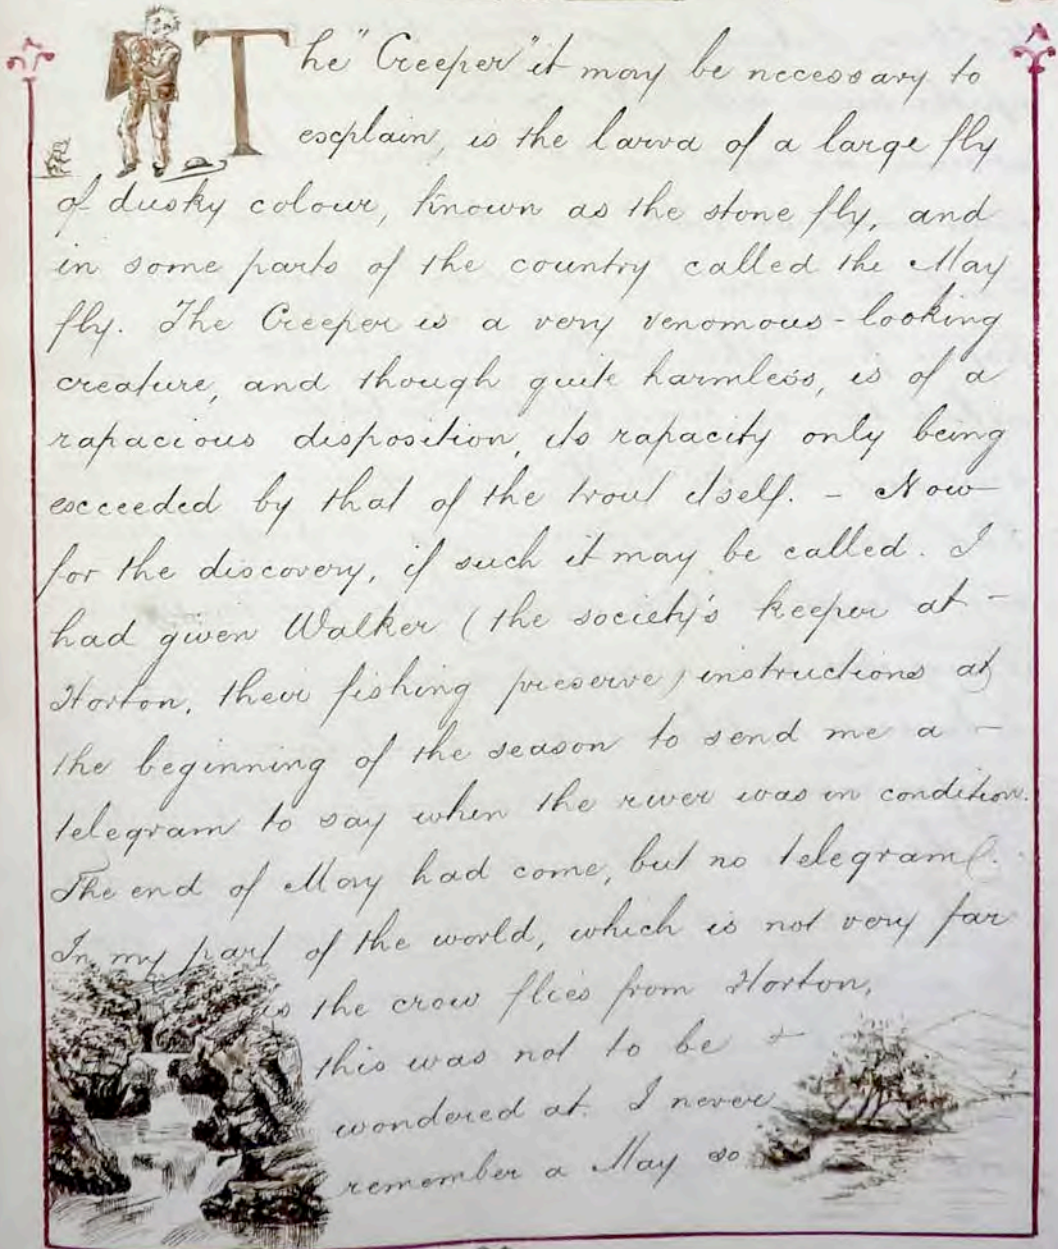 The "Creeper" it may be necessary to
explain, is the larva of a large fly
of dusky colour, known as the stone fly, and
in some parts of the country called the May
fly. The Creeper is a very venomous-looking
creature, and though quite harmless, is of a
rapacious disposition, its rapacity only being
exceeded by that of the trout itself. - Now
for the discovery, if such it may be called. I
had given Walker (the society's keeper at -
Horton, their fishing preserve) instructions at
the beginning of the season to send me a -
telegram to say when the river was in condition.
The end of May had come, but no telegram.
In my part of the world, which is not very far
as the crow flies from Horton,
this was not to be -
wondered at. I never
remember a May so